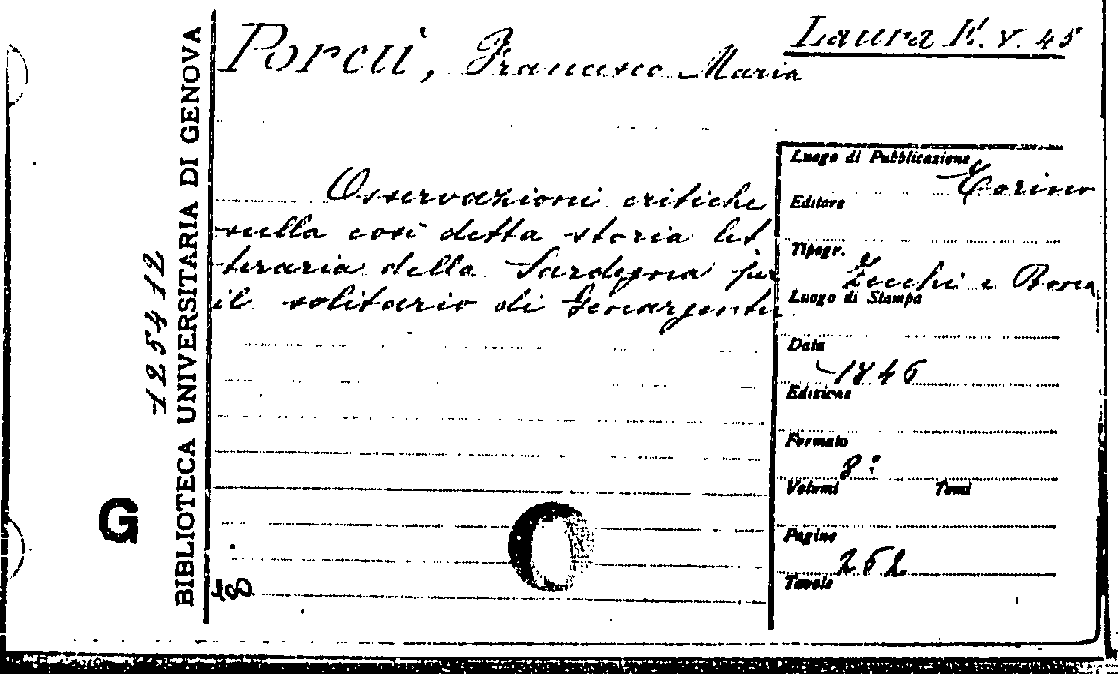 Laura H. V. 45
Porcu, Francesco Maria
BIBLIOTECA UNIVERSITARIA DI GENOVA
125412
G
Osservazioni critiche
sulla così detta storia let
teraria della Sardegna per
il solitario di Genargentu
Luogo di Pubblicazione
Torino
Editore
Tipogr.
Zecchi e Bona
Luogo di Stampa
Data
1846
Edizione
Formato
8°
Volumi Tomi
Pagine
262
Tavole